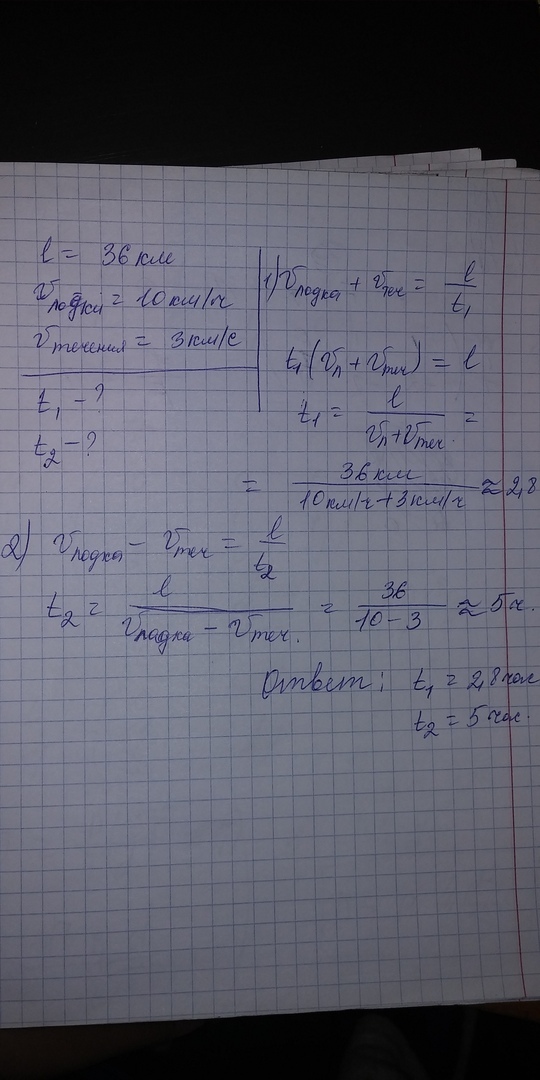 l = 36 км
v лодки = 10 км/ч
v течения = 3 км/с
t₁ - ?
t₂ - ?
1) v лодка + v теч = l / t₁
t₁ (vл + v теч) = l
t₁ = l / (vл + v теч.) =
= 36 км / (10 км/ч + 3 км/ч) ≈ 2,8
2) v лодка - v теч = l / t₂
t₂ = l / (v лодка - v теч.) = 36 / (10 - 3) ≈ 5 ч.
Ответ: t₁ = 2,8 час
t₂ = 5 час.